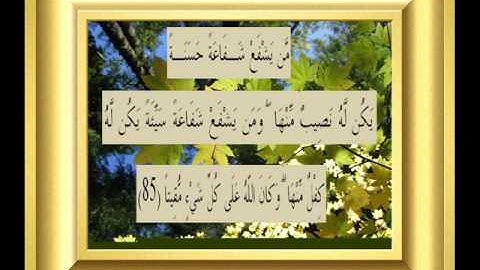 مَّن يَشْفَعْ شَـــفَاعَةً حَسَنَـــةً
يَكُن لَّهُ نَصِيبٌ مِّنْهَا ۖ وَمَن يَشْفَعْ شَفَاعَةً سَيِّئَةً يَكُن لَّهُ
كِفْلٌ مِّنْهَا ۗ وَكَانَ اللَّهُ عَلَى كُلِّ شَيْءٍ مُّقِيتاً (85)